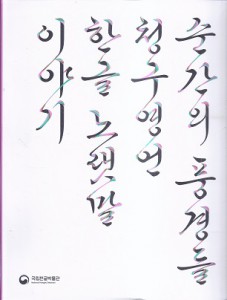 순간의 풍경들
청구영언
한글 노랫말
이야기
국립한글박물관